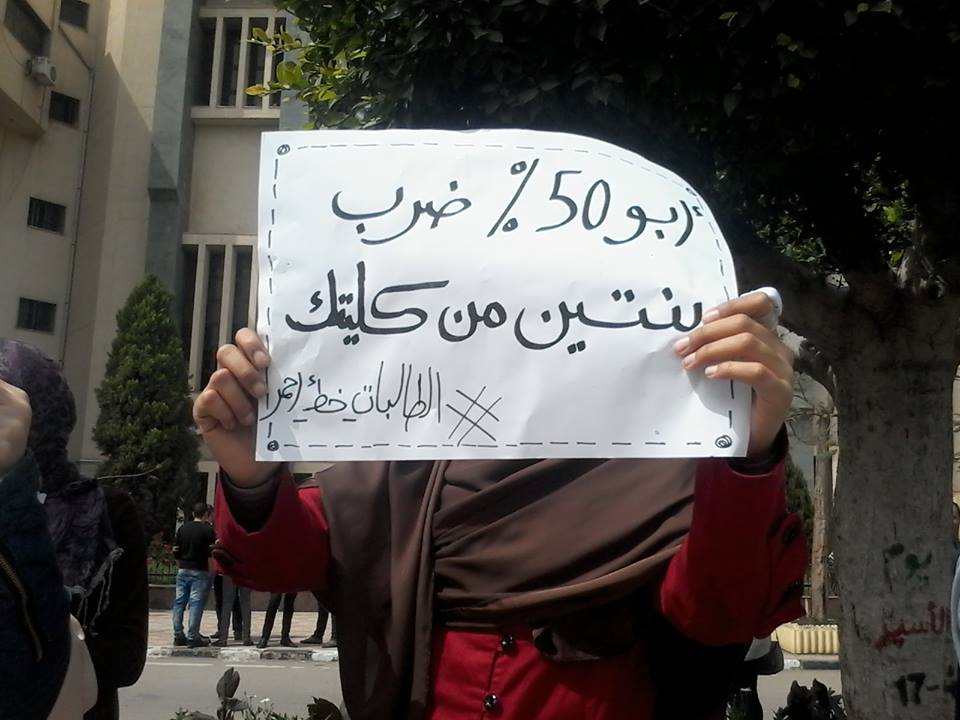 أبو 50 % ضرب
بنتين من كليتك
# الطالبات_خط_احمر
يوم
الأسير
17-